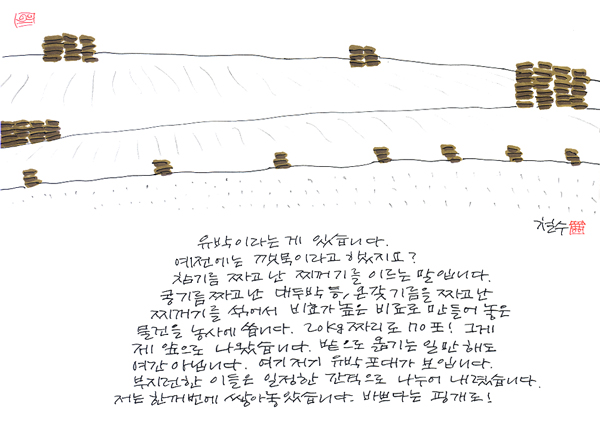 철수
유박이라는 게 있습니다.
예전에는 깻묵이라고 했지요?
참기름 짜고 난 찌꺼기를 이르는 말입니다.
콩기름 짜고 난 대두박 등, 온갖 기름을 짜고 난
찌꺼기를 섞어서 비효가 높은 비료로 만들어 놓은
물건을 농사에 씁니다. 20kg 짜리로 70포! 그게
제 앞으로 나왔습니다. 밭으로 옮기는 일만 해도
여간 아닙니다. 여기저기 유박포대가 보입니다.
부지런한 이들은 일정한 간격으로 나누어 내렸습니다.
저는 한꺼번에 쌓아놓았습니다. 바쁘다는 핑계로!